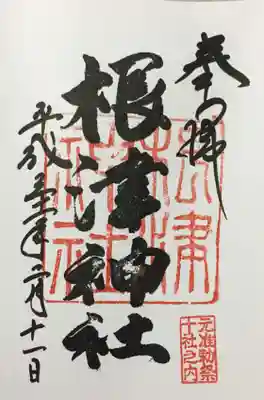 奉拝
根津神社
平成年月十一日
根津
神社
元准勅祭
十社之内